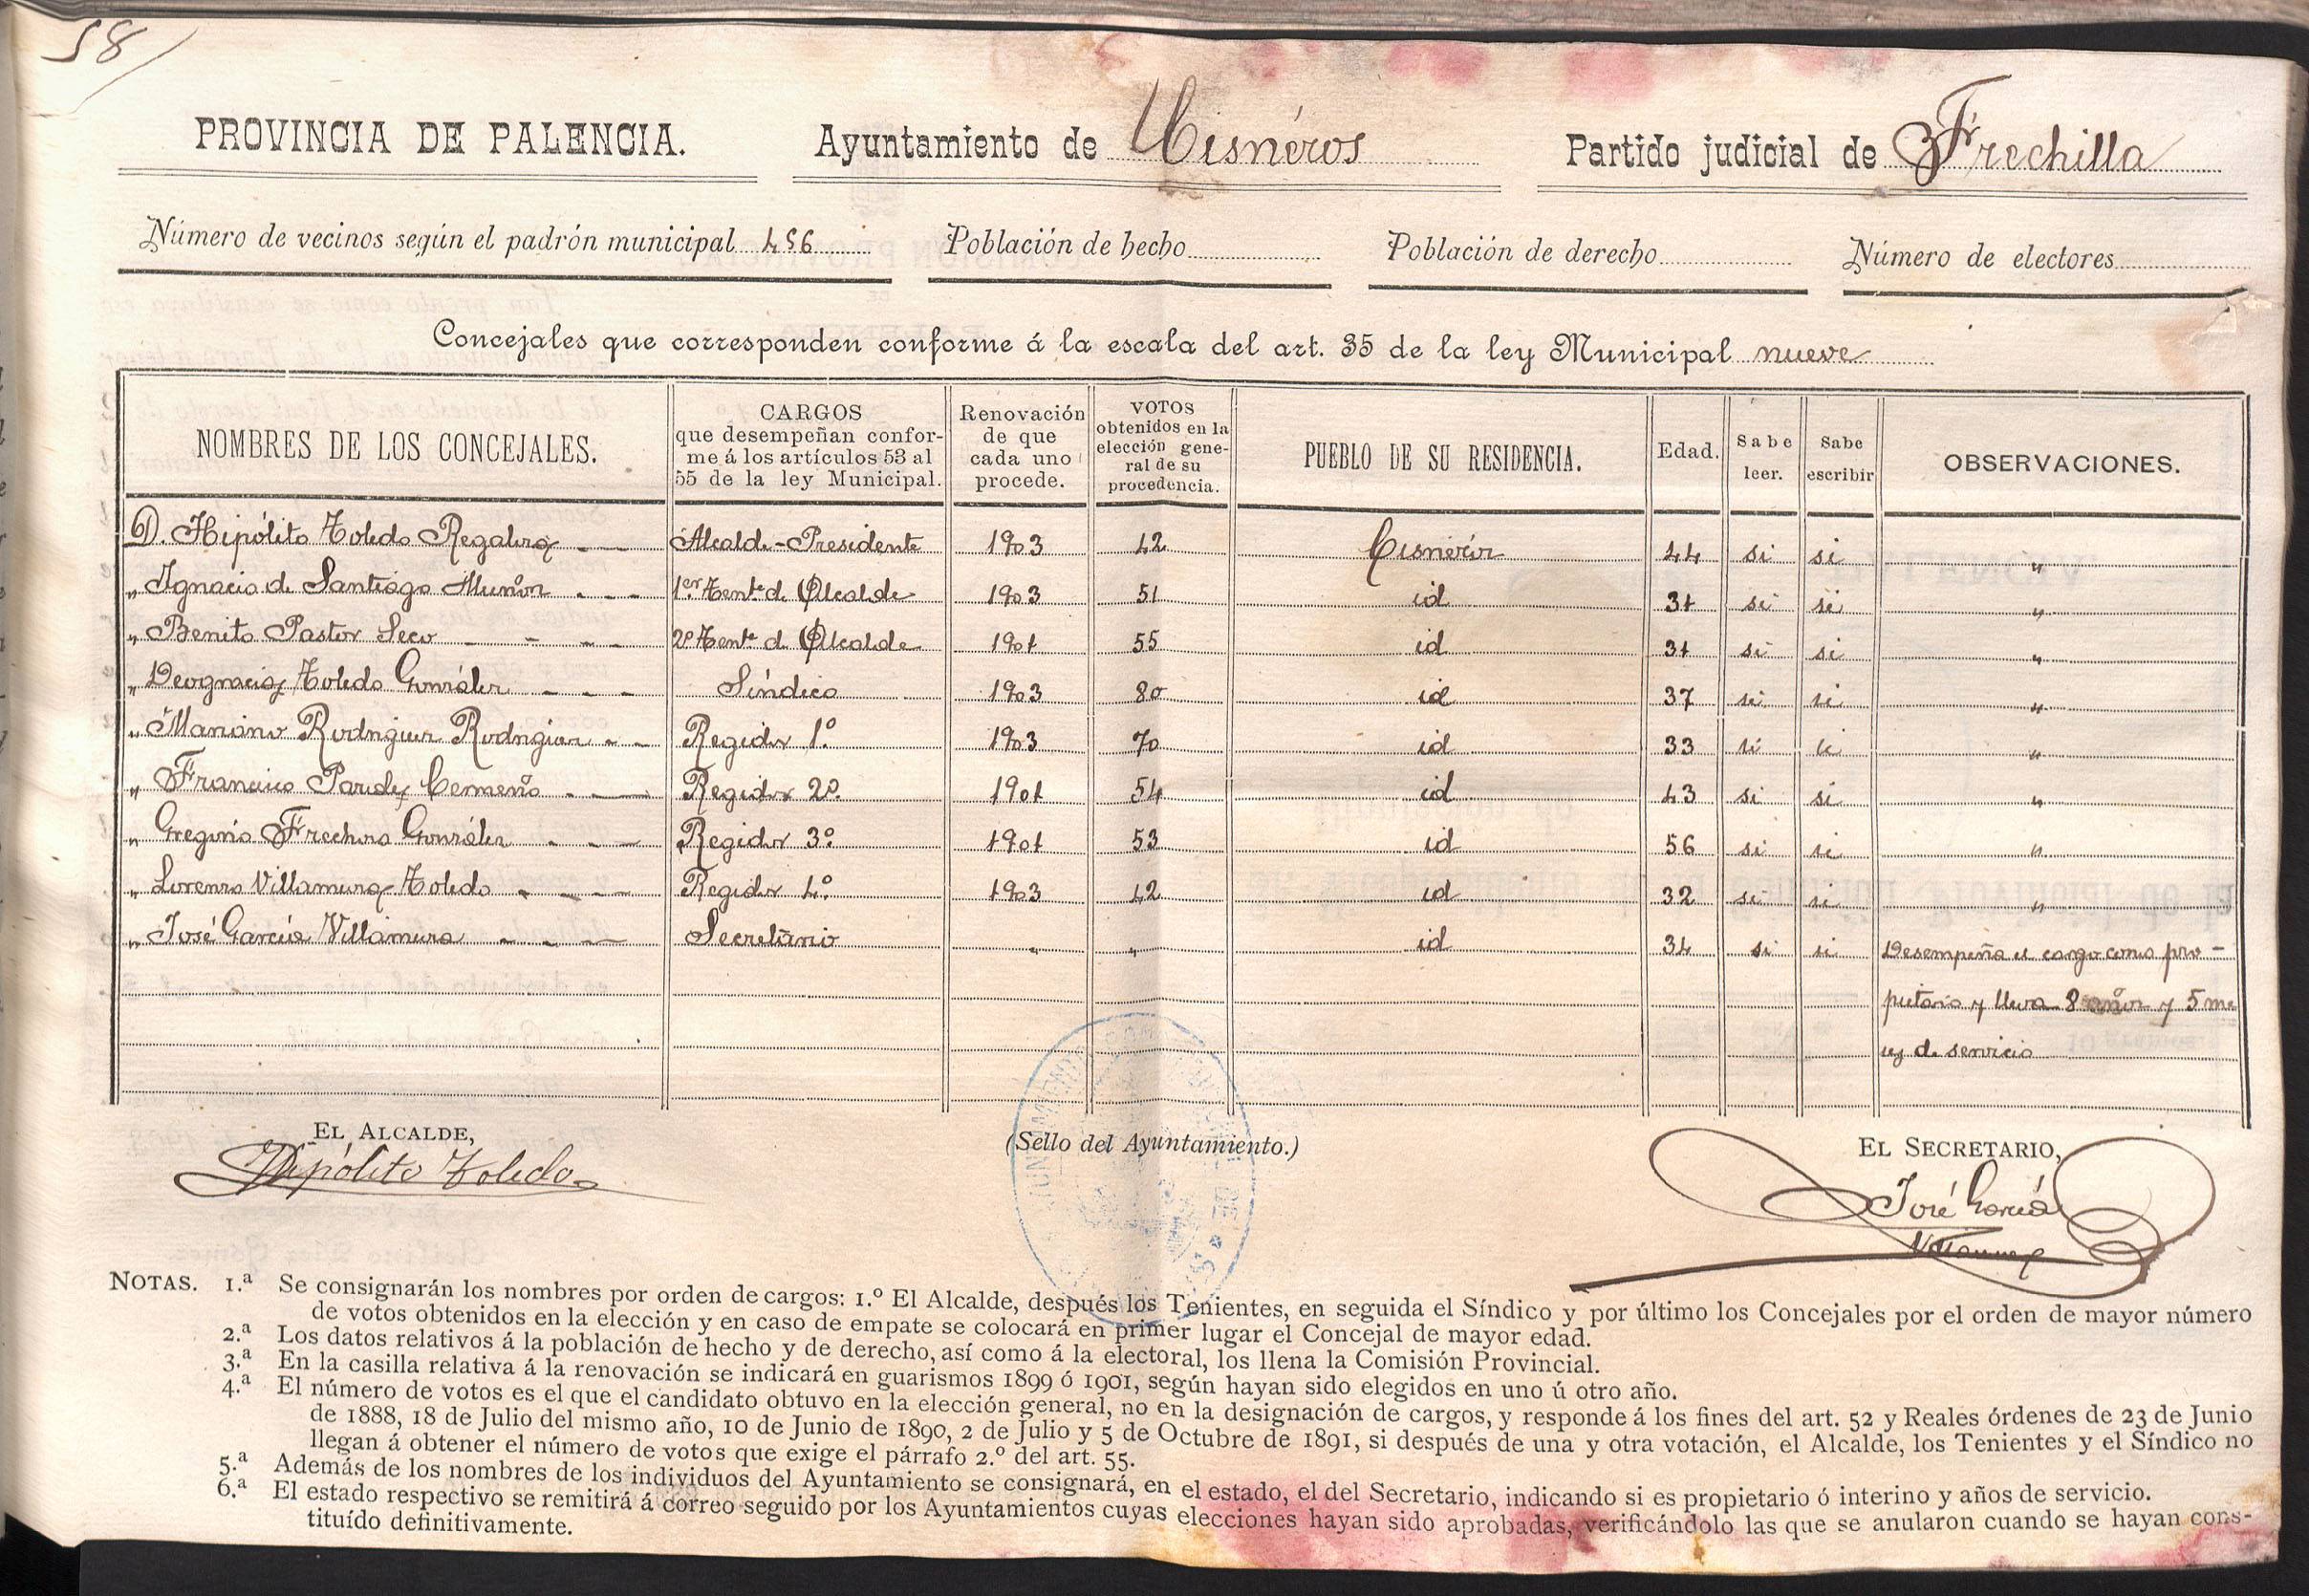 58
PROVINCIA DE PALENCIA. Ayuntamiento de Cisneros Partido judicial de Frechilla
Número de vecinos según el padrón municipal 456 Población de hecho Población de derecho Número de electores
Concejales que corresponden conforme á la escala del art. 35 de la ley Municipal nueve
NOMBRES DE LOS CONCEJALES. CARGOS que desempeñan conforme á los artículos 53 al 55 de la ley Municipal. Renovación de que cada uno procede. VOTOS obtenidos en la elección general de su procedencia. PUEBLO DE SU RESIDENCIA. Edad. Sabe leer. Sabe escribir OBSERVACIONES.
D. Hipólito Toledo Regaliza Alcalde-Presidente 1903 42 Cisneros 44 si si "
" Ignacio de Santiago Muñoz 1er Tente de Alcalde 1903 51 id 31 si si "
" Benito Pastor Seco 2º Tente de Alcalde 1901 55 id 31 si si "
" Deogracias Toledo González Síndico 1903 80 id 37 si si "
" Mariano Rodriguez Rodriguez Regidor 1º 1903 70 id 33 si si "
" Francisco Paredes Cermeño Regidor 2º 1901 54 id 43 si si "
" Gregorio Frechoso González Regidor 3º 1901 53 id 56 si si "
" Lorenzo Villamuza Toledo Regidor 4º 1903 42 id 32 si si "
" José García Villamuza Secretario " " id 34 si si Desempeña el cargo como pro-
pietario y lleva 8 años y 5 me
ses de servicio
EL ALCALDE, (Sello del Ayuntamiento.) EL SECRETARIO,
Hipólito Toledo José García
Villamuza
NOTAS. 1.ª Se consignarán los nombres por orden de cargos: 1.º El Alcalde, después los Tenientes, en seguida el Síndico y por último los Concejales por el orden de mayor número
de votos obtenidos en la elección y en caso de empate se colocará en primer lugar el Concejal de mayor edad.
2.ª Los datos relativos á la población de hecho y de derecho, así como á la electoral, los llena la Comisión Provincial.
3.ª En la casilla relativa á la renovación se indicará en guarismos 1899 ó 1901, según hayan sido elegidos en uno ú otro año.
4.ª El número de votos es el que el candidato obtuvo en la elección general, no en la designación de cargos, y responde á los fines del art. 52 y Reales órdenes de 23 de Junio
de 1888, 18 de Julio del mismo año, 10 de Junio de 1890, 2 de Julio y 5 de Octubre de 1891, si después de una y otra votación, el Alcalde, los Tenientes y el Síndico no
llegan á obtener el número de votos que exige el párrafo 2.º del art. 55.
5.ª Además de los nombres de los individuos del Ayuntamiento se consignará, en el estado, el del Secretario, indicando si es propietario ó interino y años de servicio.
6.ª El estado respectivo se remitirá á correo seguido por los Ayuntamientos cuyas elecciones hayan sido aprobadas, verificándolo las que se anularon cuando se hayan cons-
tituído definitivamente.